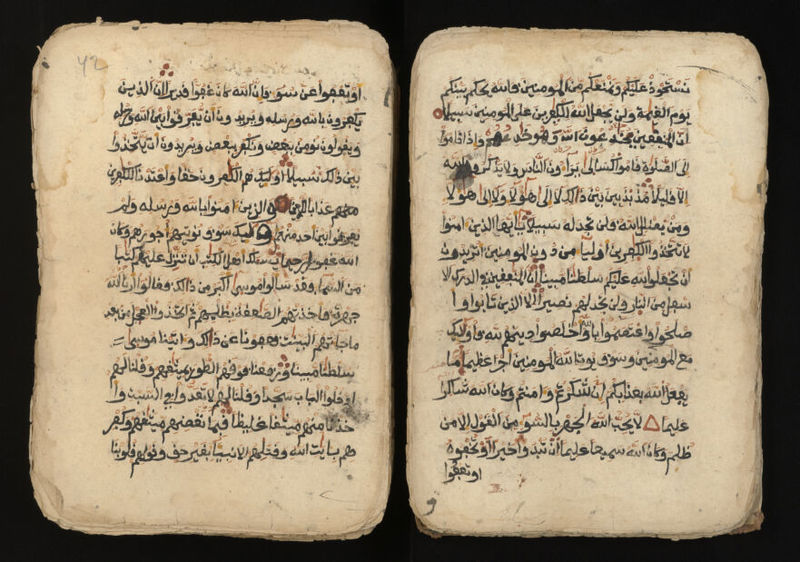 نستحوذ عليكم ونمنعكم من المومنين فالله يحكم بينكم
يوم القيمة ولن يجعل الله للكفرين على المومنين سبيلا
ان المنفقين يخدعون الله وهو خدعهم واذا قاموا
الى الصلوة قاموا كسالى يراءون الناس ولا يذكرون الله
الا قليلا مذبذبين بين ذالك لا الى هولا ولا الى هولا
ومن يضلل الله فلن تجد له سبيلا يايها الذين امنوا
لا تتخذوا الكفرين اوليا من دون المومنين اتريدون
ان تجعلوا لله عليكم سلطنا مبينا ان المنفقين في الدرك الا
سفل من النار ولن تجد لهم نصيرا الا الذين تابوا وا
صلحوا واعتصموا بالله واخلصوا دينهم لله فاوليك
مع المومنين وسوف يوت الله المومنين اجرا عظيما ما
يفعل الله بعذابكم ان شكرتم وامنتم وكان الله شاكرا
عليما لا يحب الله الجهر بالسوء من القول الا من
ظلم وكان الله سميعا عليما ان تبدوا خيرا او تخفوه
او تعفوا
42
او تعفوا عن سوء فان الله كان عفوا قديرا ان الذين
يكفرون بالله ورسله ويريدون ان يفرقوا بين الله ورسله
ويقولون نومن ببعض ونكفر ببعض ويريدون ان يتخذوا
بين ذلك سبيلا اوليك هم الكفرون حقا واعتدنا للكفرين
عذابا مهينا والذين امنوا بالله ورسله ولم
يفرقوا بين احد منهم اوليك سوف نوتيهم اجورهم وكان
الله غفورا رحيما يسلك اهل الكتب ان تنزل عليهم كتبا
من السما فقد سالوا موسى اكبر من ذالك فقالوا ارنا الله
جهرة فاخذتهم الصعقة بظلمهم ثم اتخذوا العجل من بعد
ما جاتهم البينت فعفونا عن ذالك واتينا موسى
سلطنا مبينا ورفعنا فوقهم الطور بميثقهم وقلنا لهم
ادخلوا الباب سجدا وقلنا لهم لا تعدوا في السبت وا
خذنا منهم ميثقا غليظا فبما نقضهم ميثقهم وكفر
هم بايت الله وقتلهم الانبيا بغير حق وقولهم قلوبنا